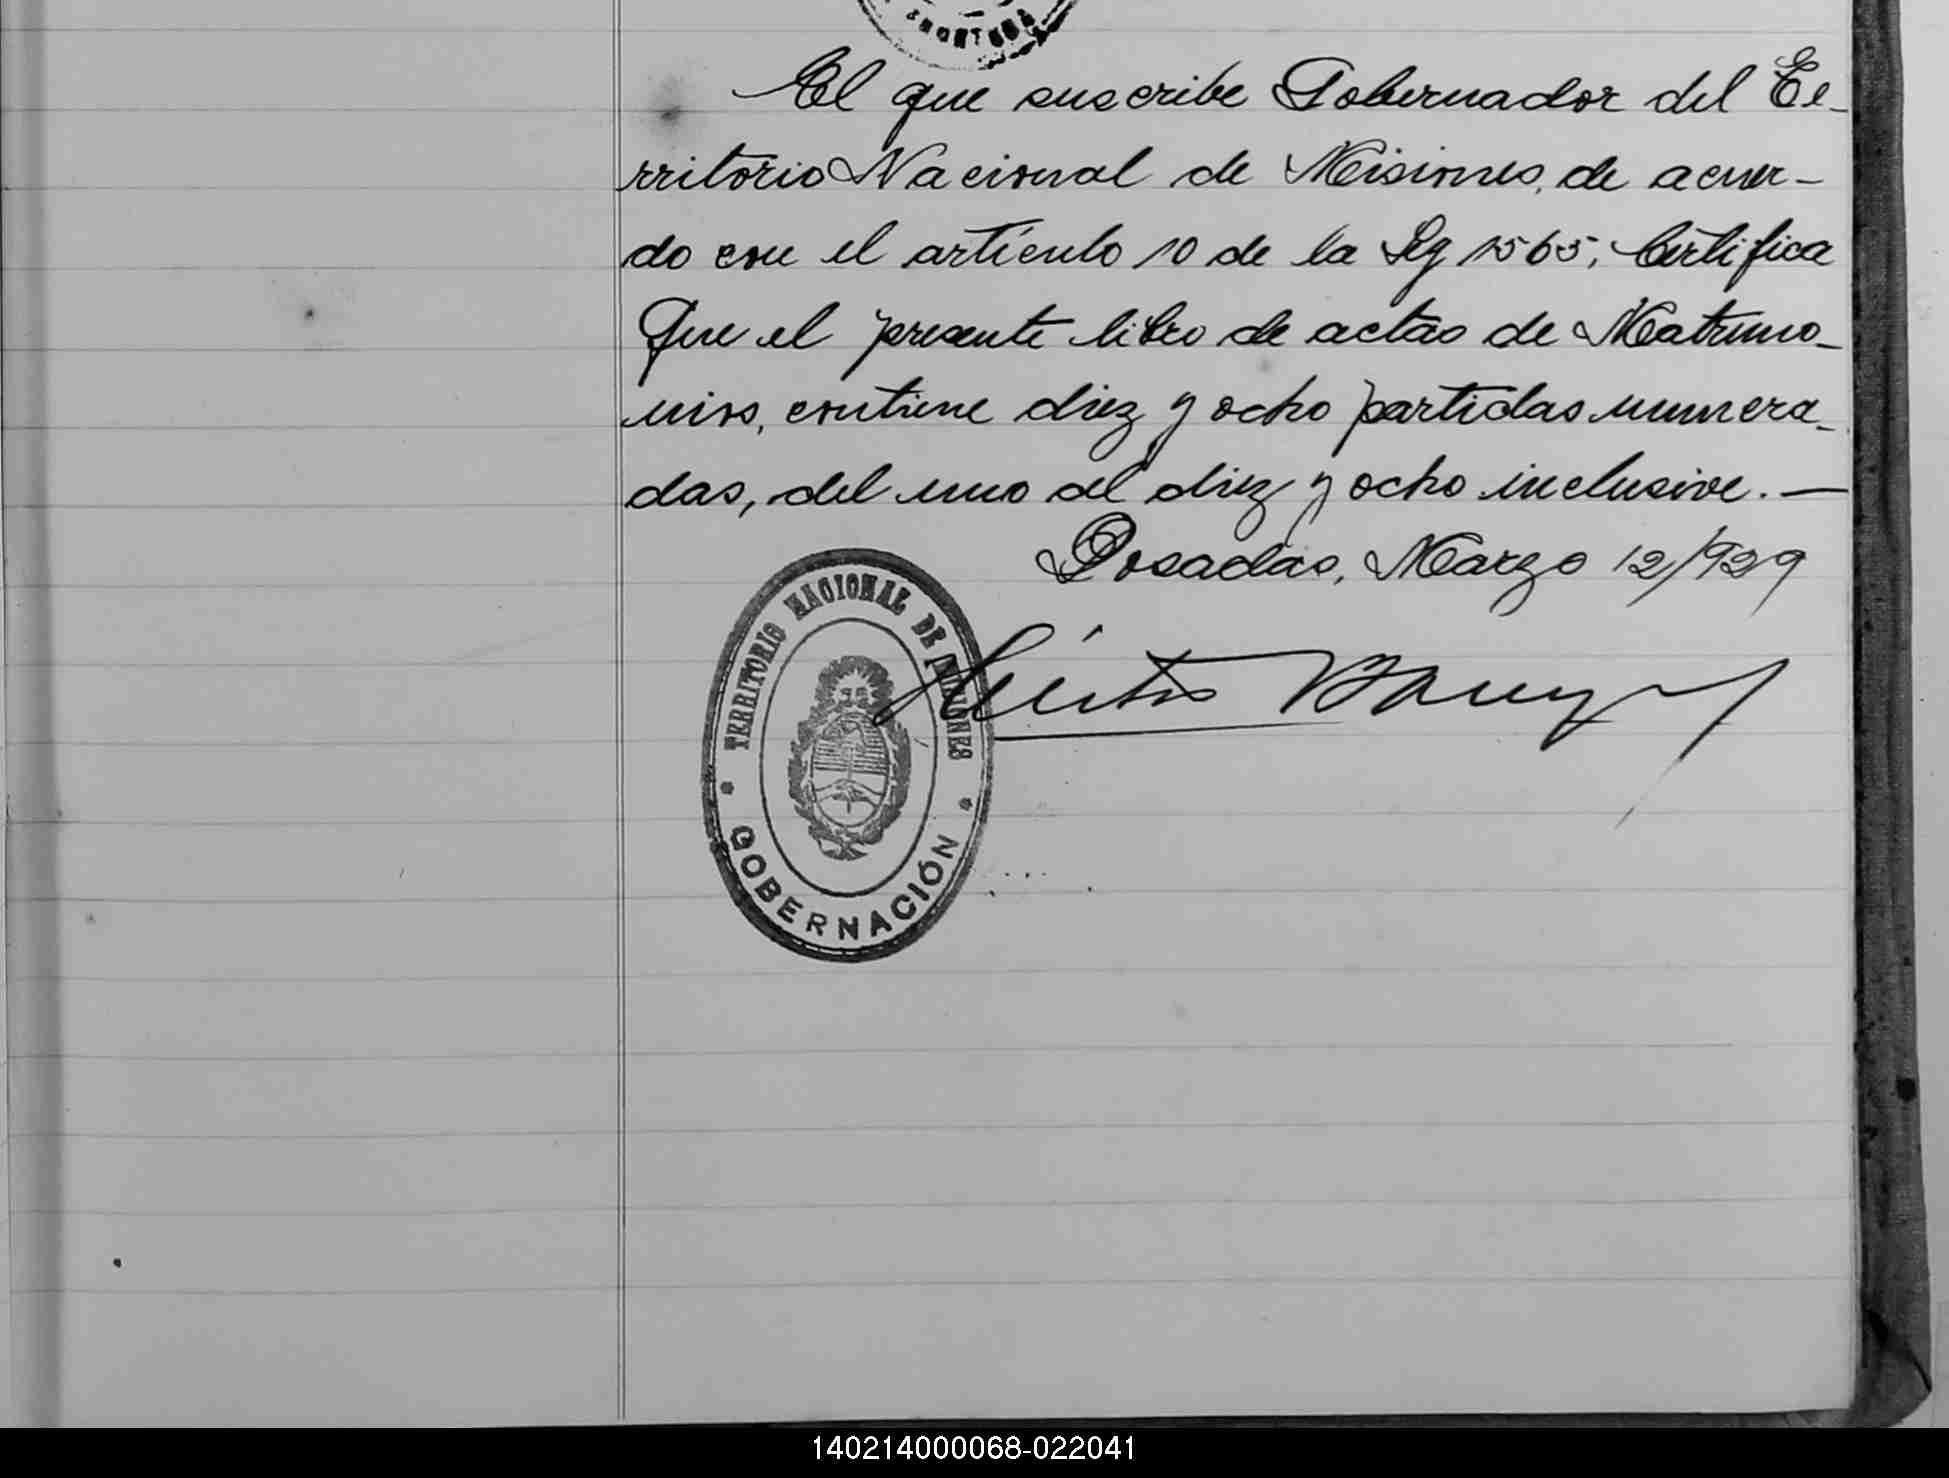 El que suscribe Gobernador del Te-
rritorio Nacional de Misiones, de acuer-
do con el artículo 10 de la Ley 1565, Certifica
Que el presente libro de actas de Matrimo-
nios, contiene diez y ocho partidas numera-
das, del uno al diez y ocho inclusive. —
Posadas, Marzo 12/929
Héctor
TERRITORIO NACIONAL DE MISIONES
GOBERNACIÓN
140214000068-022041